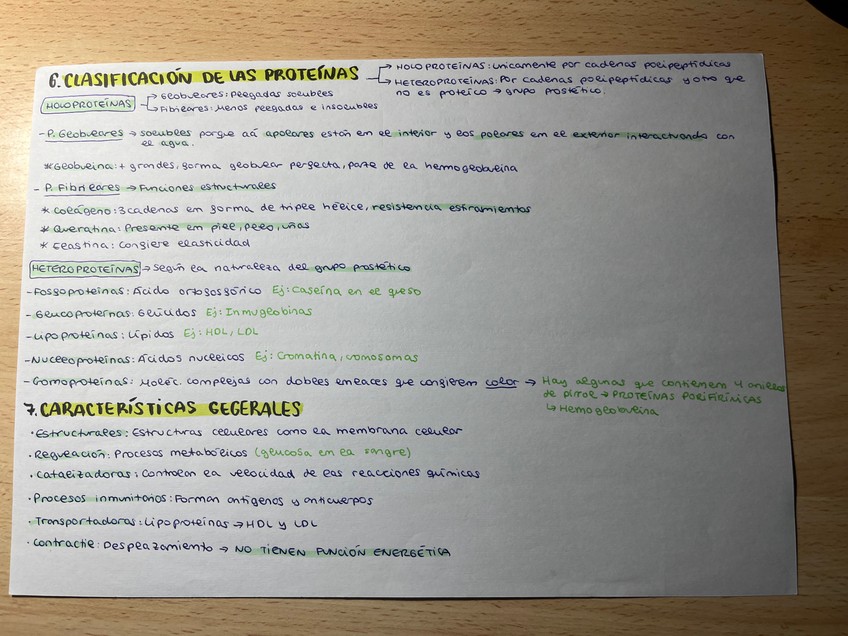 6. CLASIFICACIÓN DE LAS PROTEÍNAS
→ HOLOPROTEÍNAS: Unicamente por cadenas polipeptídicas
→ HETEROPROTEÍNAS: Por cadenas polipeptídicas y otro que
no es protéico → grupo prostético.
HOLOPROTEÍNAS → Globulares: Plegadas solubles
→ Fibrilares: Menos plegadas e insolubles
- P. Globulares → solubles porque aá apolares están en el interior y los polares en el exterior interactuando con
el agua.
* Globulina: + grandes, forma globular perfecta, parte de la hemoglobulina
- P. Fibrilares → Funciones estructurales
* Colágeno: 3 cadenas en forma de triple hélice, resistencia estiramientos
* Queratina: Presente en piel, pelo, uñas
* Elastina: Confiere elasticidad
HETEROPROTEÍNAS → Según la naturaleza del grupo prostético
- Fosfoproteínas: Ácido ortofosfórico Ej: Caseína en el queso
- Glucoproteínas: Glúcidos Ej: Inmuglobinas
- Lipoproteínas: Lípidos Ej: HDL, LDL
- Nucleoproteínas: Ácidos nucleicos Ej: Cromatina, cromosomas
- Cromoproteínas: Moléc. complejas con dobles enlaces que confieren color → Hay algunas que contienen 4 anillos
de pirrol → PROTEÍNAS PORIFIRÍNICAS
↳ Hemoglobulina
7. CARACTERÍSTICAS GEGERALES
· Estructurales: Estructuras celulares como la membrana celular
· Regulación: Procesos metabólicos (glucosa en la sangre)
· Catalizadoras: Controlan la velocidad de las reacciones químicas
· Procesos inmunitarios: Forman antígenos y anticuerpos
· Transportadoras: Lipoproteínas → HDL y LDL
· Contractil: Desplazamiento → NO TIENEN FUNCIÓN ENERGÉTICA